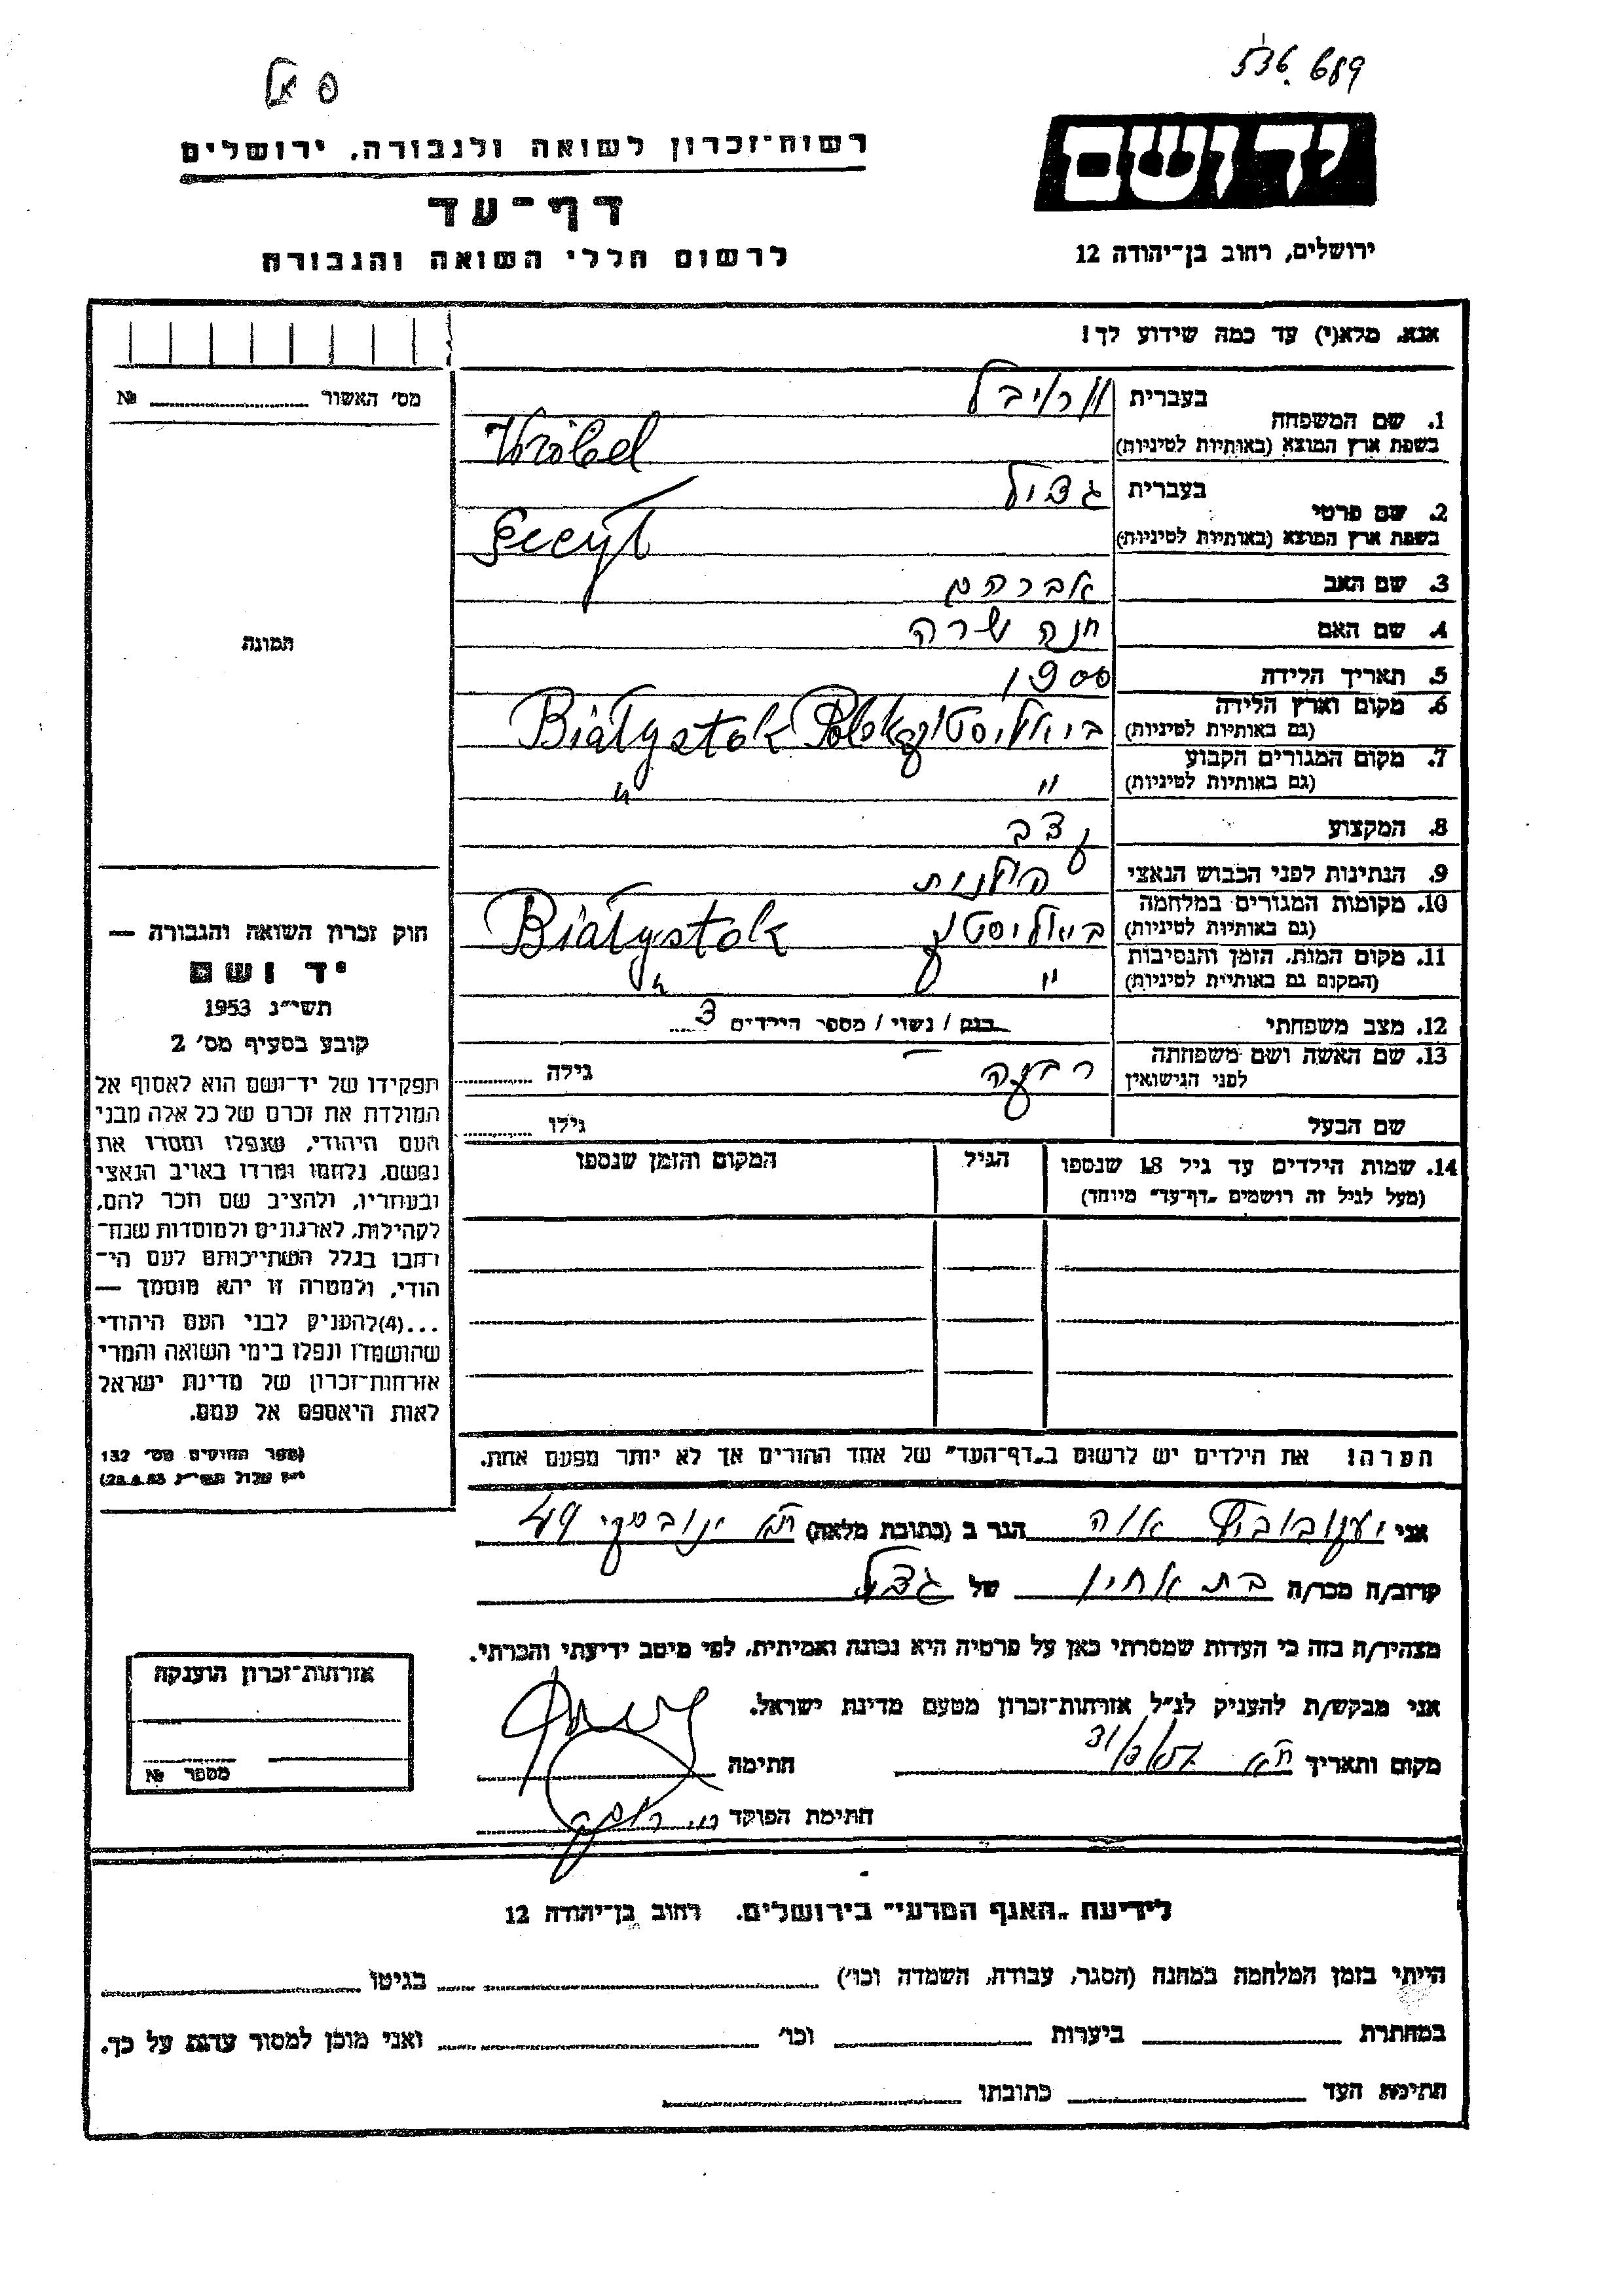 536.689
רשות־זכרון לשואה ולגבורה, ירושלים
יד ושם
דף־עד
לרשום חללי השואה והגבורה
ירושלים, רחוב בן־יהודה 12
אנא, מלא(י) עד כמה שידוע לך!
מס׳ האשור № 
1. שם המשפחה
בעברית
בשפת ארץ המוצא (באותיות לטיניות)
Vróbel
2. שם פרטי
בעברית
בשפת ארץ המוצא (באותיות לטיניות)
3. שם האב אברהם
4. שם האם חנה שרה
תמונה
5. תאריך הלידה 1900
6. מקום וארץ הלידה
(גם באותיות לטיניות)
ביאליסטוק Białystok
7. מקום המגורים הקבוע
(גם באותיות לטיניות)
" "
8. המקצוע
9. הנתינות לפני הכבוש הנאצי
10. מקומות המגורים במלחמה
(גם באותיות לטיניות)
ביאליסטוק Białystok
11. מקום המות, הזמן והנסיבות
(המקום גם באותיות לטיניות)
" "
12. מצב משפחתי רוק / נשוי / מספר הילדים 3
13. שם האשה ושם משפחתה
לפני הנישואין
גילה
שם הבעל גילו
14. שמות הילדים עד גיל 18 שנספו
(מעל לגיל זה רושמים „דף־עד״ מיוחד)
הגיל
המקום והזמן שנספו
הערה! את הילדים יש לרשום ב„דף־העד״ של אחד ההורים אך לא יותר מפעם אחת.
חוק זכרון השואה והגבורה —
יד ושם
תשי״ג 1953
קובע בסעיף מס׳ 2
תפקידו של יד־ושם הוא לאסוף אל
המולדת את זכרם של כל אלה מבני
העם היהודי, שנפלו ומסרו את
נפשם, נלחמו ומרדו באויב הנאצי
ובעוזריו, ולהציב שם וזכר להם,
לקהילות, לארגונים ולמוסדות שנח־
רבו בגלל השתייכותם לעם הי־
הודי, ולמטרה זו יהא מוסמך —
...(4)להעניק לבני העם היהודי
שהושמדו ונפלו בימי השואה והמרי
אזרחות־זכרון של מדינת ישראל
לאות היאספם אל עמם.
(ספר החוקים מס׳ 132
י״ז אלול תשי״ג 28.8.53)
אני הגר ב (כתובת מלאה) ת״א 49
קרוב/ה מכר/ה בת אחיו של
מצהיר/ה בזה כי העדות שמסרתי כאן על פרטיה היא נכונה ואמיתית, לפי מיטב ידיעתי והכרתי.
אני מבקש/ת להעניק לנ״ל אזרחות־זכרון מטעם מדינת ישראל.
מקום ותאריך ת״א חתימה
חתימת הפוקד
אזרחות־זכרון הוענקה
מספר №
לידיעת „האגף המדעי״ בירושלים, רחוב בן־יהודה 12
הייתי בזמן המלחמה במחנה (הסגר, עבודה, השמדה וכו׳) בגיטו
במחתרת ביערות וכו׳ ואני מוכן למסור עדות על כך.
חתימת העד כתובתו